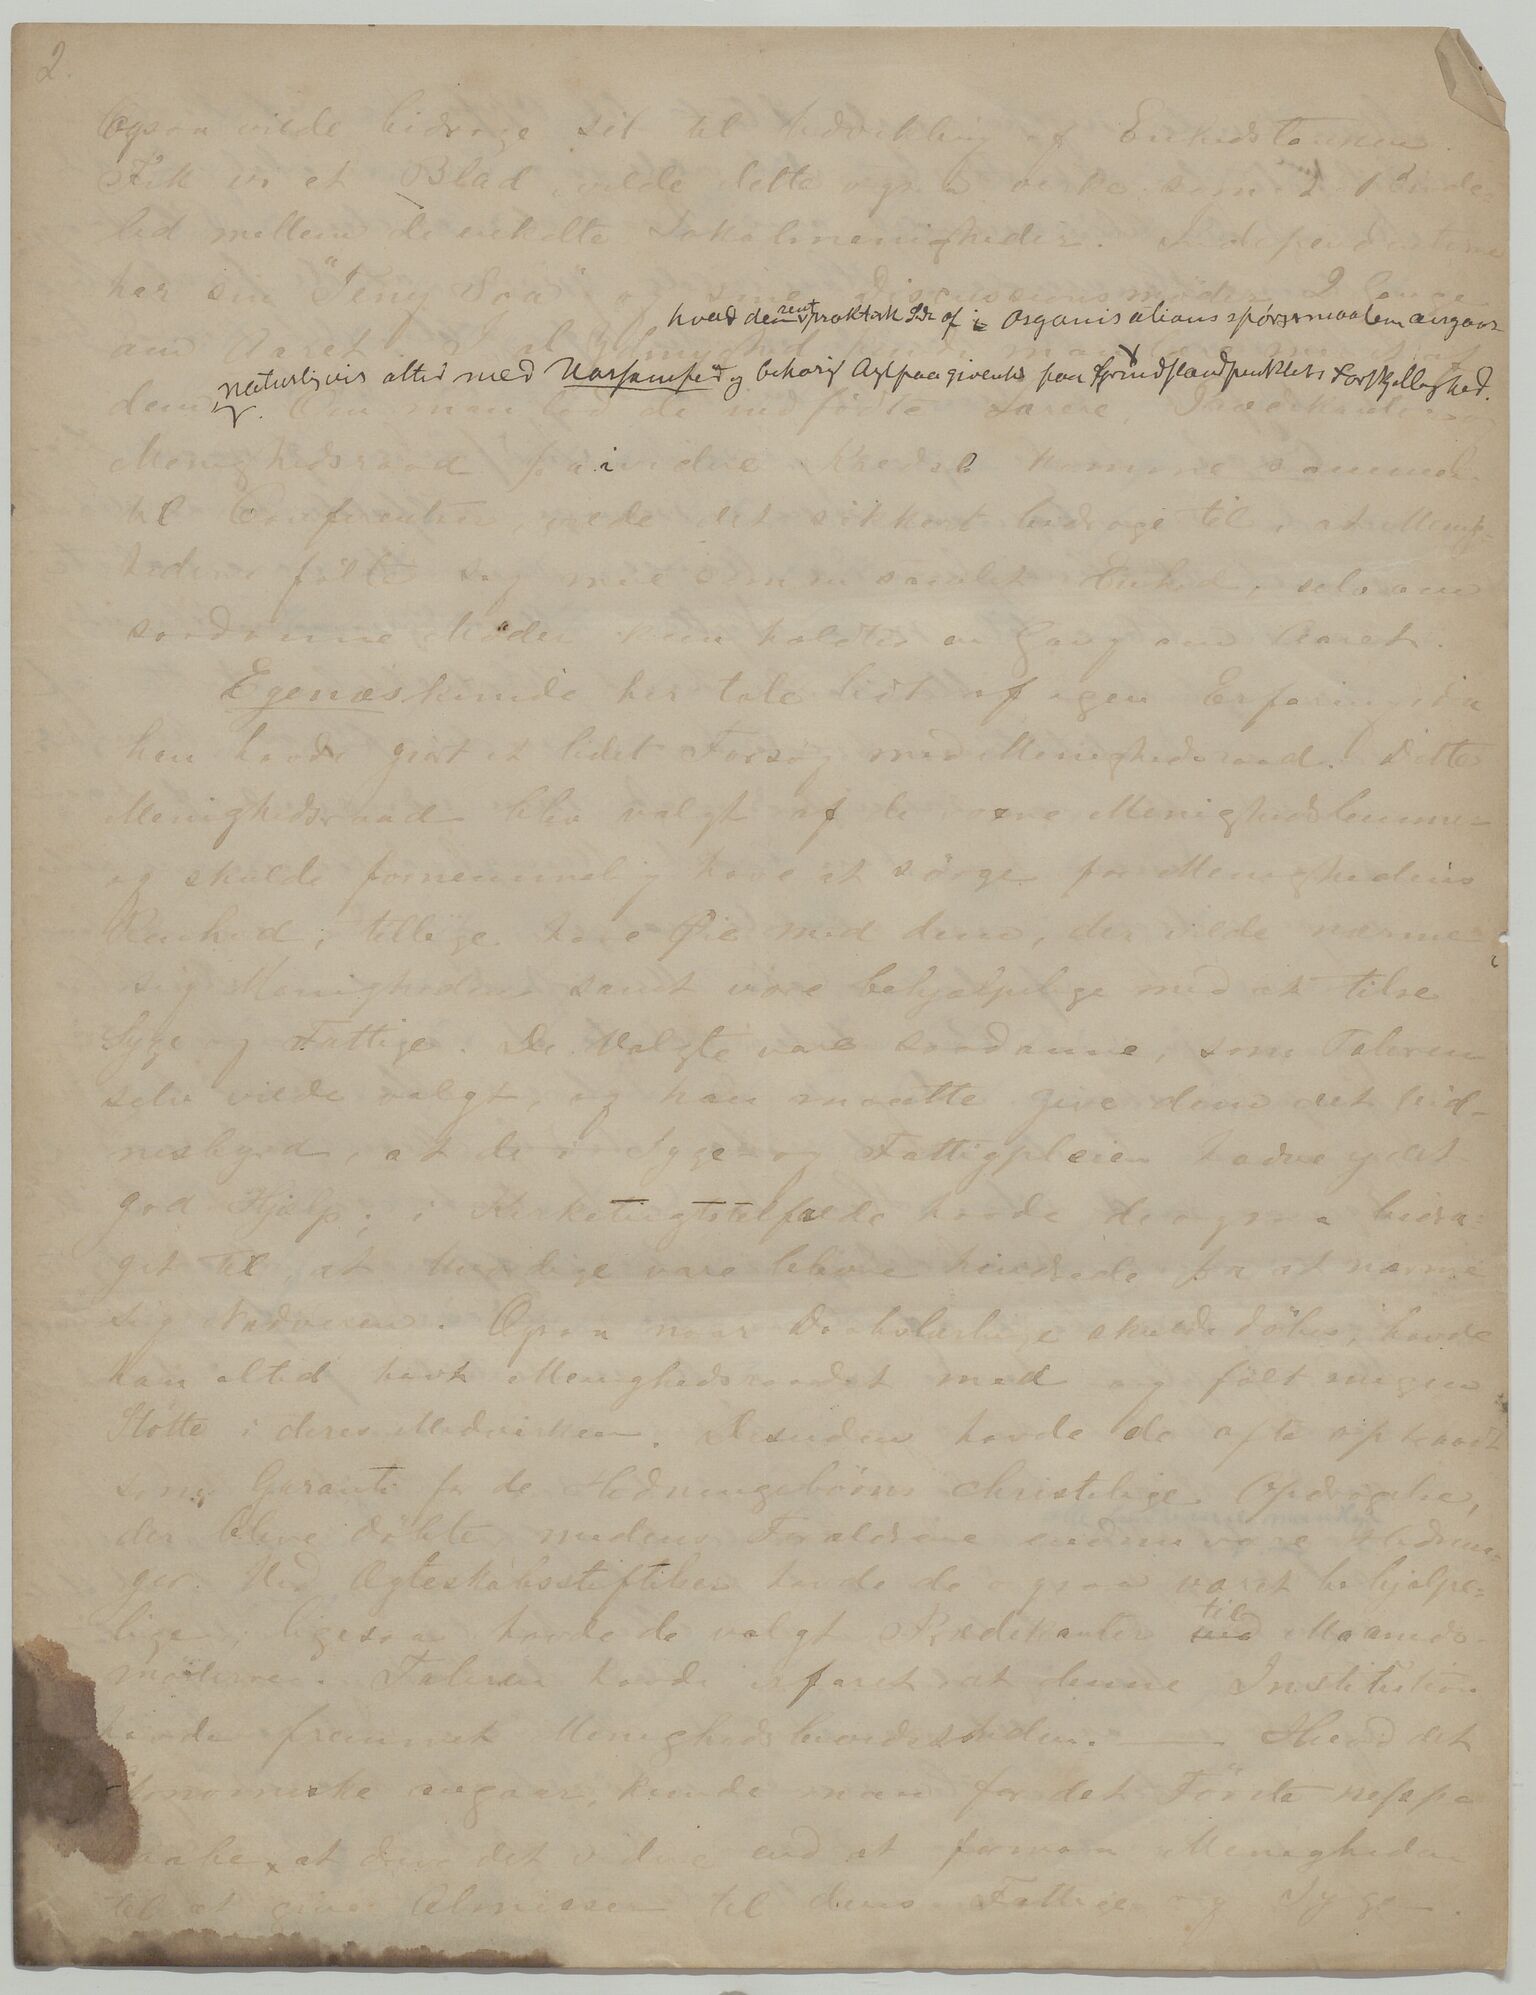 2.
Ogsaa vilde bidrage sit til Udvikling af Enhedstanken.
Fik vi et Blad, vilde dette ogsaa virke som et Binde-
led mellem de enkelte Lokalmenigheder. Independenterne
har sin "Teny Soa" og sine Discussionsmøder 2 Gange
hvad den rent praktisk Side af Organisationsspörgsmaalene angaar
om Aaret. I al Ydmyghed kunde man lære af
naturligvis altid med Varsomhed og behørig Agtpaagivenhed paa Grundstandpunktets Forskjellighed.
dem. Om man lod de indfødte Lærere, Prædikanter og
Menighedsraad fra i videre Kredse komme sammen
til Conferentser, vilde det sikkert bidrage til, at Menig-
hederne fölte sig mere som en samlet Enhed, selv om
saadanne Möder kun holdtes en Gang om Aaret.
Egenæs kunde her tale lidt af egen Erfaring, da
han havde gjort et lidet Forsög med Menighedsraad. Dette
Menighedsraad blev valgt af de voxne Menighedslemmer
og skulde fornemmelig have at sörge for Menighedens
Renhed, tillige have Öie med dem, der vilde nærme
sig Menigheden samt være behjælpelige med at tilse
Syge og Fattige. De Valgte vare saadanne, som Taleren
selv vilde valgt, og han maatte give dem det Vid-
nesbyrd, at de i Syge- og Fattigpleien havde ydet
god Hjælp; i Kirketugtstilfælde havde de ogsaa bidra-
get til, at Uværdige vare blevne hindrede fra at nærme
sig Nadveren. Ogsaa naar Daabslærlinge skulde döbes, havde
han altid havt Menighedsraadet med og fölt megen
Stötte i deres Medvirken. Desuden havde de ofte optraadt
som Garanti for de Hedningebörns christelige Opdragelse,
der bleve döbte, medens Forældrene endnu vare Hednin-
ger. Ved Ægteskabsstiftelser havde de ogsaa været behjælpe-
lige, ligesaa havde de valgt Prædikanter til Maaneds-
möderne. Taleren havde erfaret, at denne Institution
havde fremmet Menighedsbevidstheden. — Hvad det
Økonomiske angaar, kunde man for det Förste neppe
haabe at drive det videre end at formaa Menigheden
til at give Almisser til dens Fattige og Syge.